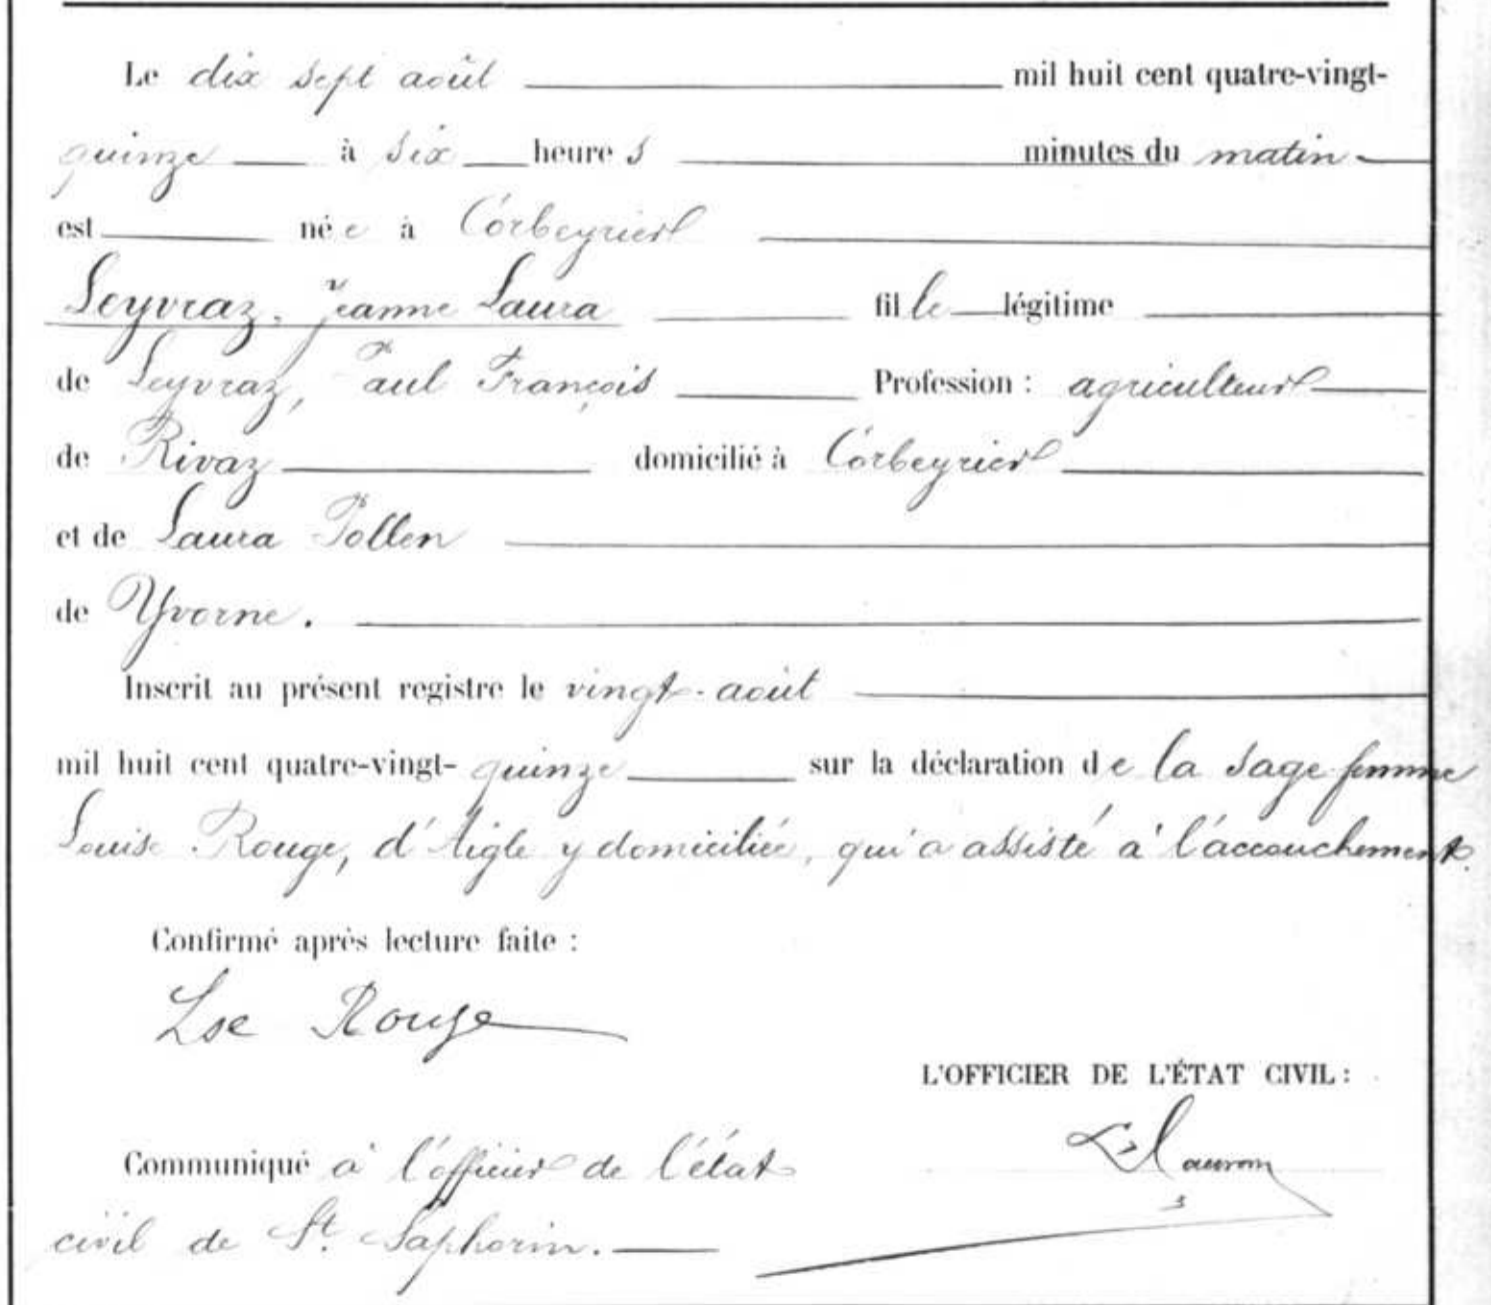 Le dix sept août mil huit cent quatre-vingt-
quinze à six heures minutes du matin
est née à Corbeyrier
Leyvraz, Jeanne Laura fille légitime
de Leyvraz, Paul François Profession : agriculteur
de Rivaz domicilié à Corbeyrier
et de Laura Pollen
de Yvorne.
Inscrit au présent registre le vingt-août
mil huit cent quatre-vingt-quinze sur la déclaration de la sage femme
Louise Rouge, d'Aigle y domiciliée, qui a assisté à l'accouchement.
Confirmé après lecture faite :
Lse Rouge
L'OFFICIER DE L'ÉTAT CIVIL :
Communiqué à l'officier de l'état
civil de St. Saphorin.